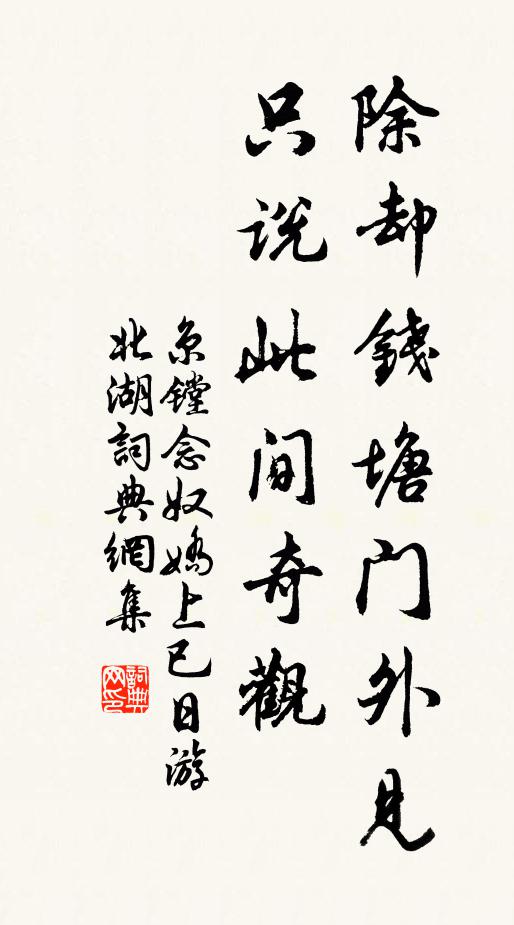 除却錢塘门外見
只説此间奇觀
京鏜念奴嬌上巳日游
北湖詞典網集
詞典
网印